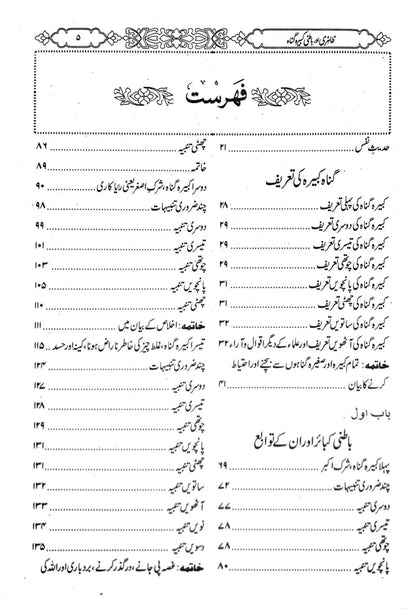 ظاہری اور باطنی کبیرہ گناہ
۵
فہرست
حدیثِ نفس ۲۱
گناہ کبیرہ کی تعریف
کبیرہ گناہ کی پہلی تعریف ۲۸
کبیرہ گناہ کی دوسری تعریف ۲۹
کبیرہ گناہ کی تیسری تعریف ۲۹
کبیرہ گناہ کی چوتھی تعریف ۲۹
کبیرہ گناہ کی پانچویں تعریف ۳۱
کبیرہ گناہ کی چھٹی تعریف ۳۱
کبیرہ گناہ کی ساتویں تعریف ۳۲
کبیرہ گناہ کی آٹھویں تعریف اور علماء کے دیگر اقوال و آراء ۳۲
خاتمہ: تمام کبیرہ اور صغیرہ گناہوں سے بچنے اور احتیاط
کرنے کا بیان ۴۱
باب اول
باطنی کبائر اور ان کے توابع
پہلا کبیرہ گناہ، شرک اکبر ۶۹
چند ضروری تنبیہات ۷۲
دوسری تنبیہ ۷۷
تیسری تنبیہ ۷۸
چوتھی تنبیہ ۷۸
پانچویں تنبیہ ۸۰
چھٹی تنبیہ ۸۶
خاتمہ ۸۹
دوسرا کبیرہ گناہ، شرک اصغر یعنی ریا کاری ۹۰
چند ضروری تنبیہات ۹۸
دوسری تنبیہ ۹۹
تیسری تنبیہ ۱۰۱
چوتھی تنبیہ ۱۰۳
پانچویں تنبیہ ۱۰۵
چھٹی تنبیہ ۱۱۰
خاتمہ: اخلاص کے بیان میں ۱۱۱
تیسرا کبیرہ گناہ، غلط چیز کی خاطر ناراض ہونا، کینہ اور حسد ۱۱۵
چند ضروری تنبیہات ۱۲۴
دوسری تنبیہ ۱۲۷
تیسری تنبیہ ۱۲۸
چوتھی تنبیہ ۱۲۹
پانچویں تنبیہ ۱۳۱
چھٹی تنبیہ ۱۳۱
ساتویں تنبیہ ۱۳۲
آٹھویں تنبیہ ۱۳۳
نویں تنبیہ ۱۳۴
دسویں تنبیہ ۱۳۵
خاتمہ: غصہ پی جانے، درگذر کرنے، بردباری اور اللہ کی